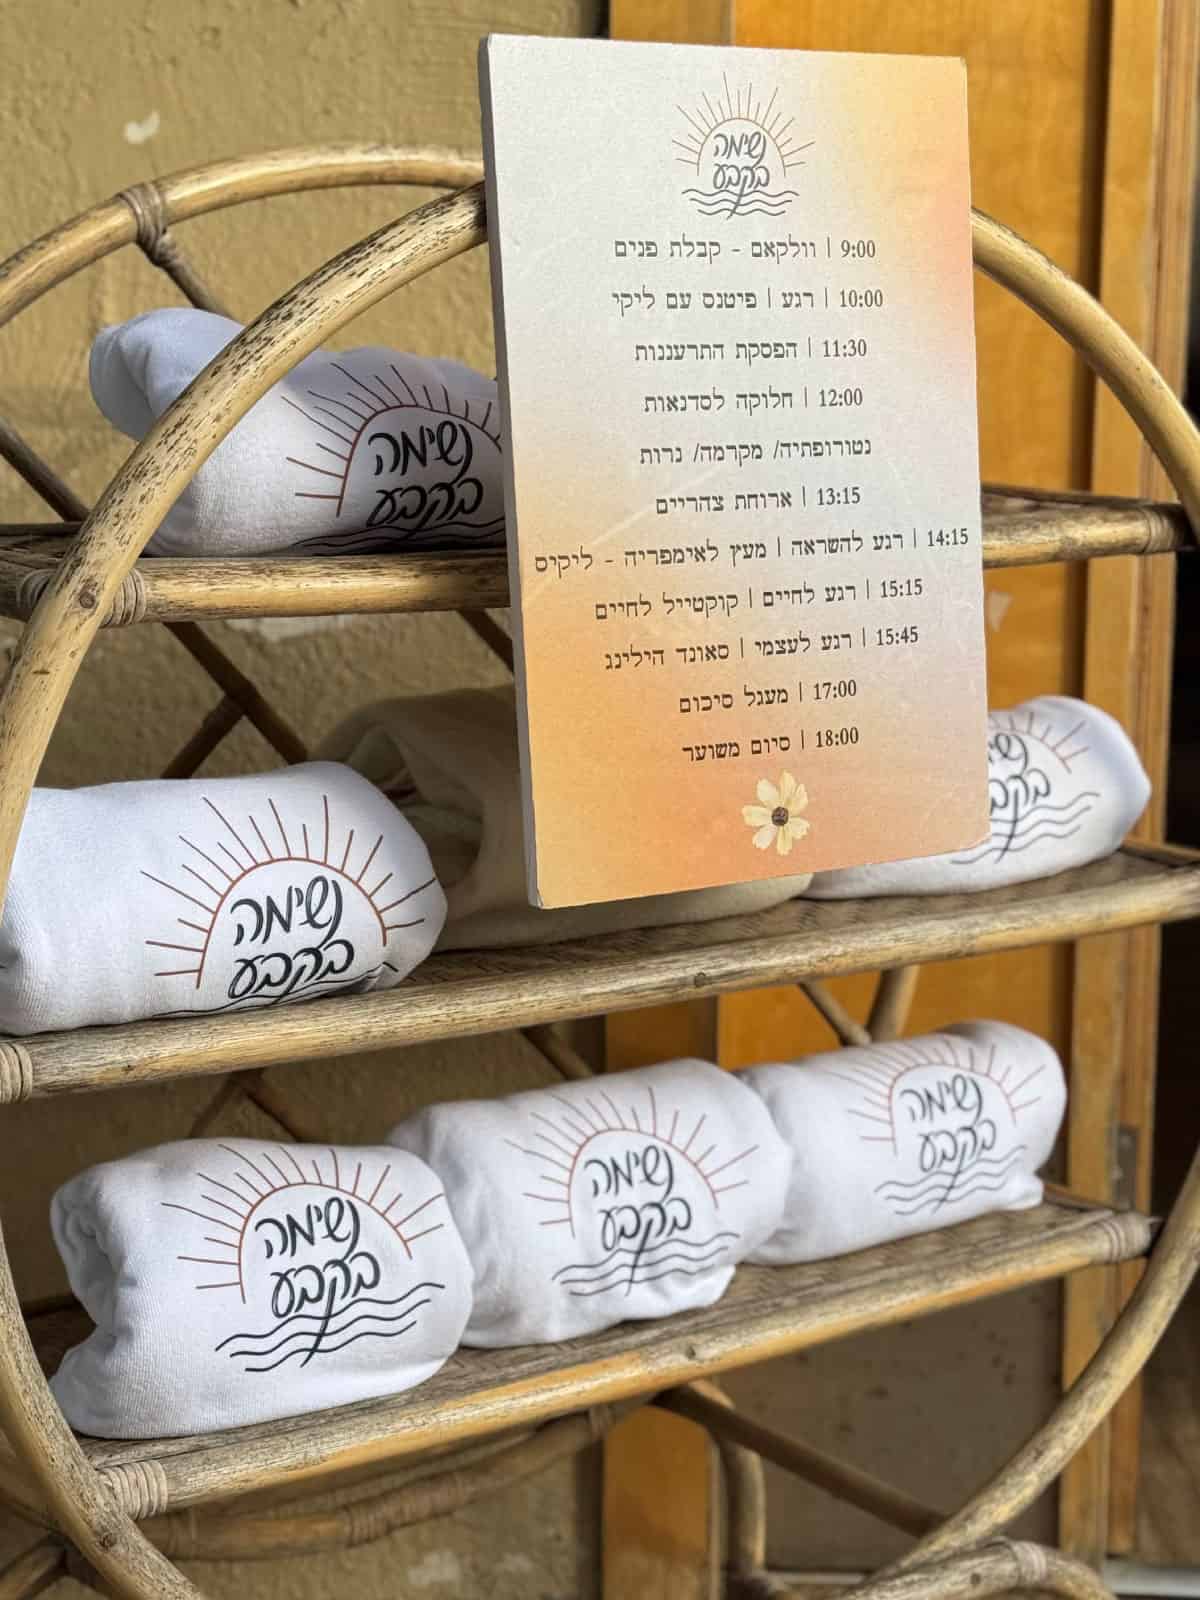 נשימה
בקבע
9:00 | וולקאם - קבלת פנים
10:00 | רגע | פיטנס עם ליקי
11:30 | הפסקת התרעננות
12:00 | חלוקה לסדנאות
נטורופתיה/ מקרמה/ נרות
13:15 | ארוחת צהריים
14:15 | רגע להשראה | מעץ לאימפריה - ליקיס
15:15 | רגע לחיים | קוקטייל לחיים
15:45 | רגע לעצמי | סאונד הילינג
17:00 | מעגל סיכום
18:00 | סיום משוער
נשימה
בקבע
נשימה
בקבע
נשימה
בקבע
נשימה
בקבע
נשימה
בקבע